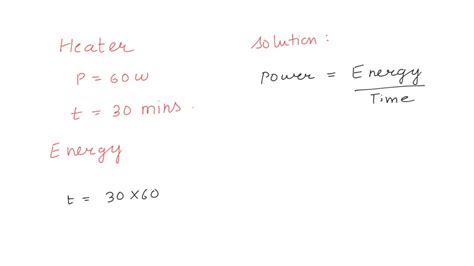 Heater
P = 60W
t = 30 mins.
Energy
t = 30 × 60
Solution :
Power = Energy
Time